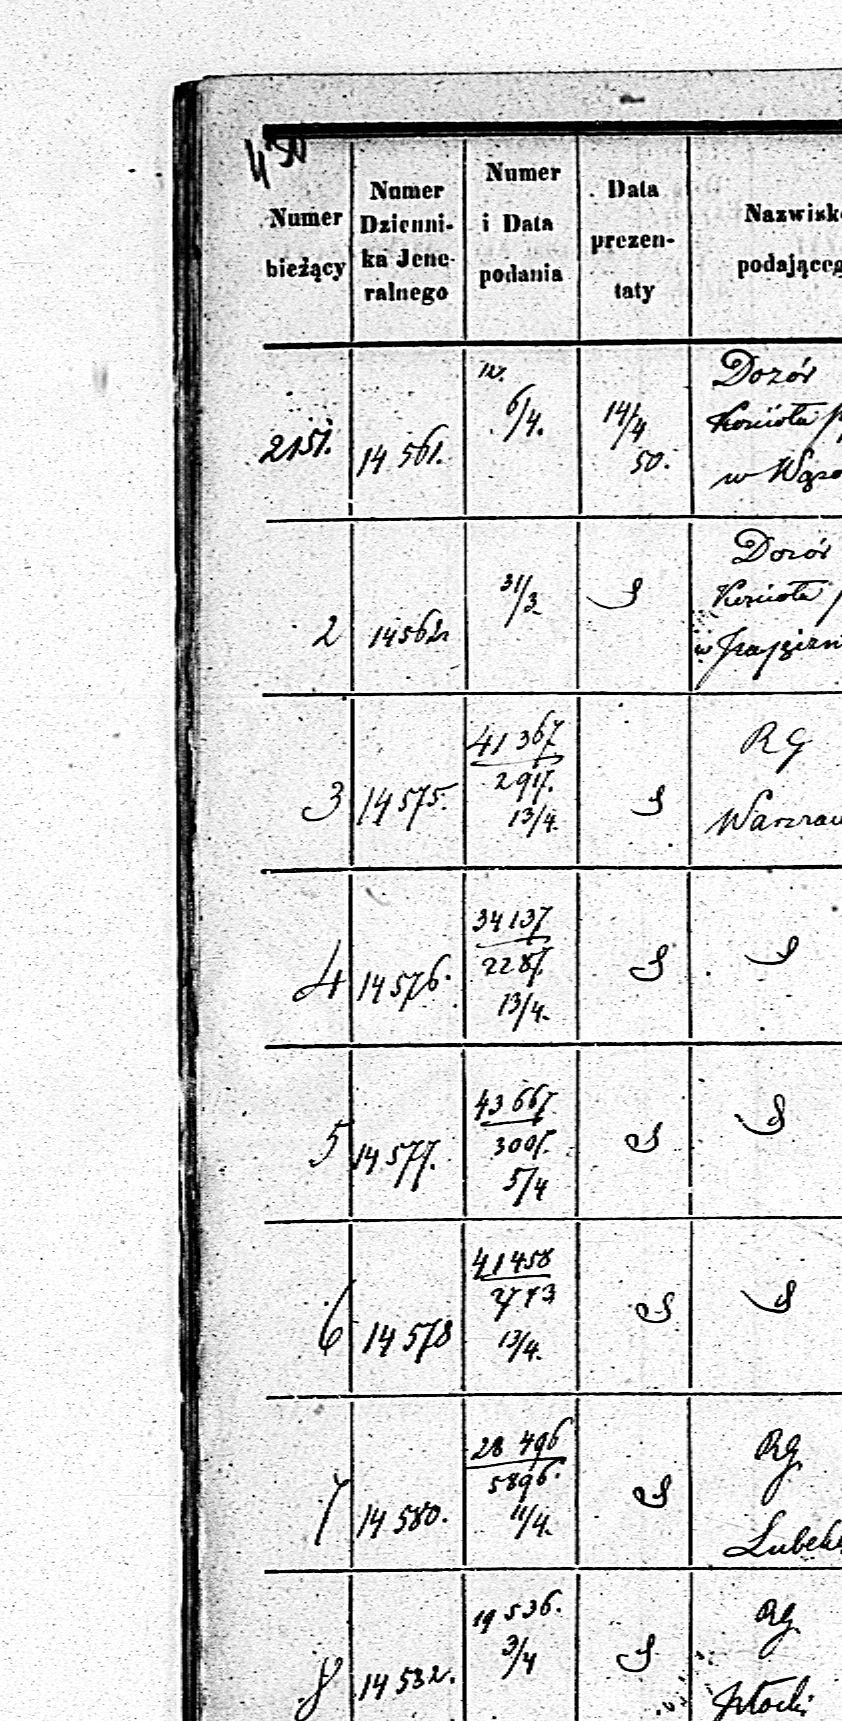 430
Numer bieżący
Numer Dzienni- ka Jene- ralnego
Numer i Data podania
Data prezen- taty
Nazwisk podając
2151. 14 561. 6/4. 14/4 50. Dozór Kościoła w
2 14562 31/3 Dozór Kościoła
3 14575. 41367 2917. 13/4. RG
4 14576. 34137 2287. 13/4.
5 14577. 43667 3007. 5/4
6 14578 41458 2773 13/4.
7 14580. 28 496 5896. 11/4. RG
8 14582. 19 536. 3/4 RG